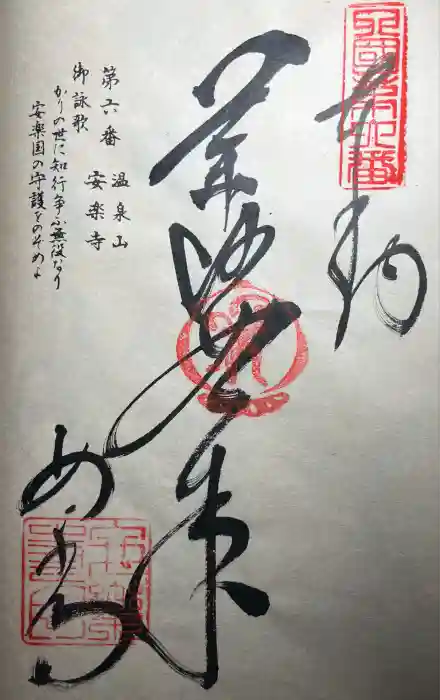 四國第六番
奉納
薬師如来
安楽寺
第六番 温泉山
安楽寺
御詠歌
かりの世に知行争ふ無役なり
安楽国の守護をのぞめよ